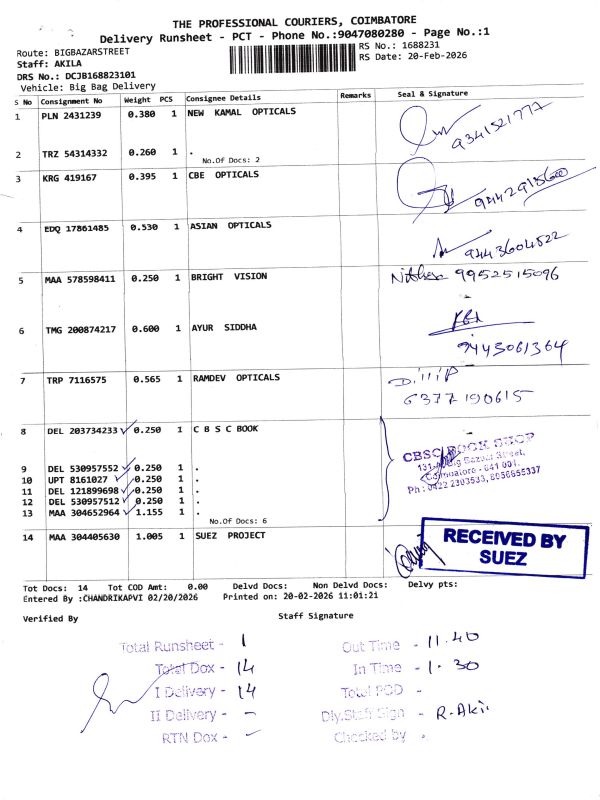 THE PROFESSIONAL COURIERS, COIMBATORE
Delivery Runsheet - PCT - Phone No.:9047080280 - Page No.:1
Route: BIGBAZARSTREET
RS No.: 1688231
Staff: AKILA
RS Date: 20-Feb-2026
DRS No.: DCJB168823101
Vehicle: Big Bag Delivery
S No Consignment No Weight PCS Consignee Details Remarks Seal & Signature
1 PLN 2431239 0.380 1 NEW KAMAL OPTICALS
9341521777
2 TRZ 54314332 0.260 1 .
No.Of Docs: 2
3 KRG 419167 0.395 1 CBE OPTICALS
4 EDQ 17861485 0.530 1 ASIAN OPTICALS
9443604522
5 MAA 578598411 0.250 1 BRIGHT VISION
9952515096
6 TMG 200874217 0.600 1 AYUR SIDDHA
9443061364
7 TRP 7116575 0.565 1 RAMDEV OPTICALS
Dillip
6377190615
8 DEL 203734233 0.250 1 C B S C BOOK
CBSC BOOK SHOP
Big Bazaar Street,
Coimbatore - 641 001.
Ph: 0422 2303533, 8056655337
9 DEL 530957552 0.250 1 .
10 UPT 8161027 0.250 1 .
11 DEL 121899698 0.250 1 .
12 DEL 530957512 0.250 1 .
13 MAA 304652964 1.155 1 .
No.Of Docs: 6
14 MAA 304405630 1.005 1 SUEZ PROJECT
RECEIVED BY
SUEZ
Tot Docs: 14 Tot COD Amt: 0.00 Delvd Docs: Non Delvd Docs: Delvy pts:
Entered By :CHANDRIKAPVI 02/20/2026 Printed on: 20-02-2026 11:01:21
Verified By Staff Signature
Total Runsheet - 1
Out Time - 11.40
Total Dox - 14
In Time - 1.30
I Delivery - 14
Total POD -
II Delivery - -
Dly.Staff Sign - R.Aki
RTN Dox -
Checked by -